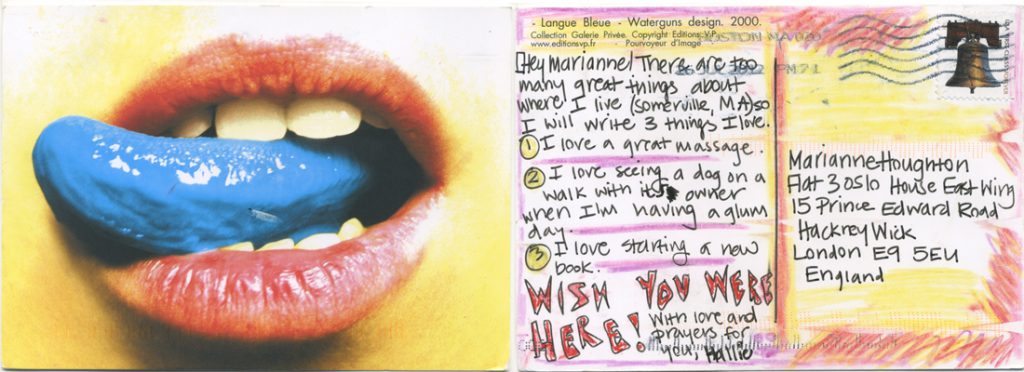 - Langue Bleue - Waterguns design. 2000.
Collection Galerie Privée. Copyright Editions V.P.
www.editionsvp.fr - Pourvoyeur d'Image
BOSTON MA 020
PM 7 L
Hey Marianne! There are too
many great things about
where I live (Somerville, MA) so
I will write 3 things I love.
1 I love a great massage.
2 I love seeing a dog on a
walk with its owner
when I'm having a glum
day.
3 I love starting a new
book.
WISH YOU WERE
HERE! With love and
prayers for
you, Hallie
Marianne Houghton
Flat 3 Oslo House East Wing
15 Prince Edward Road
Hackney Wick
London E9 5EU
England